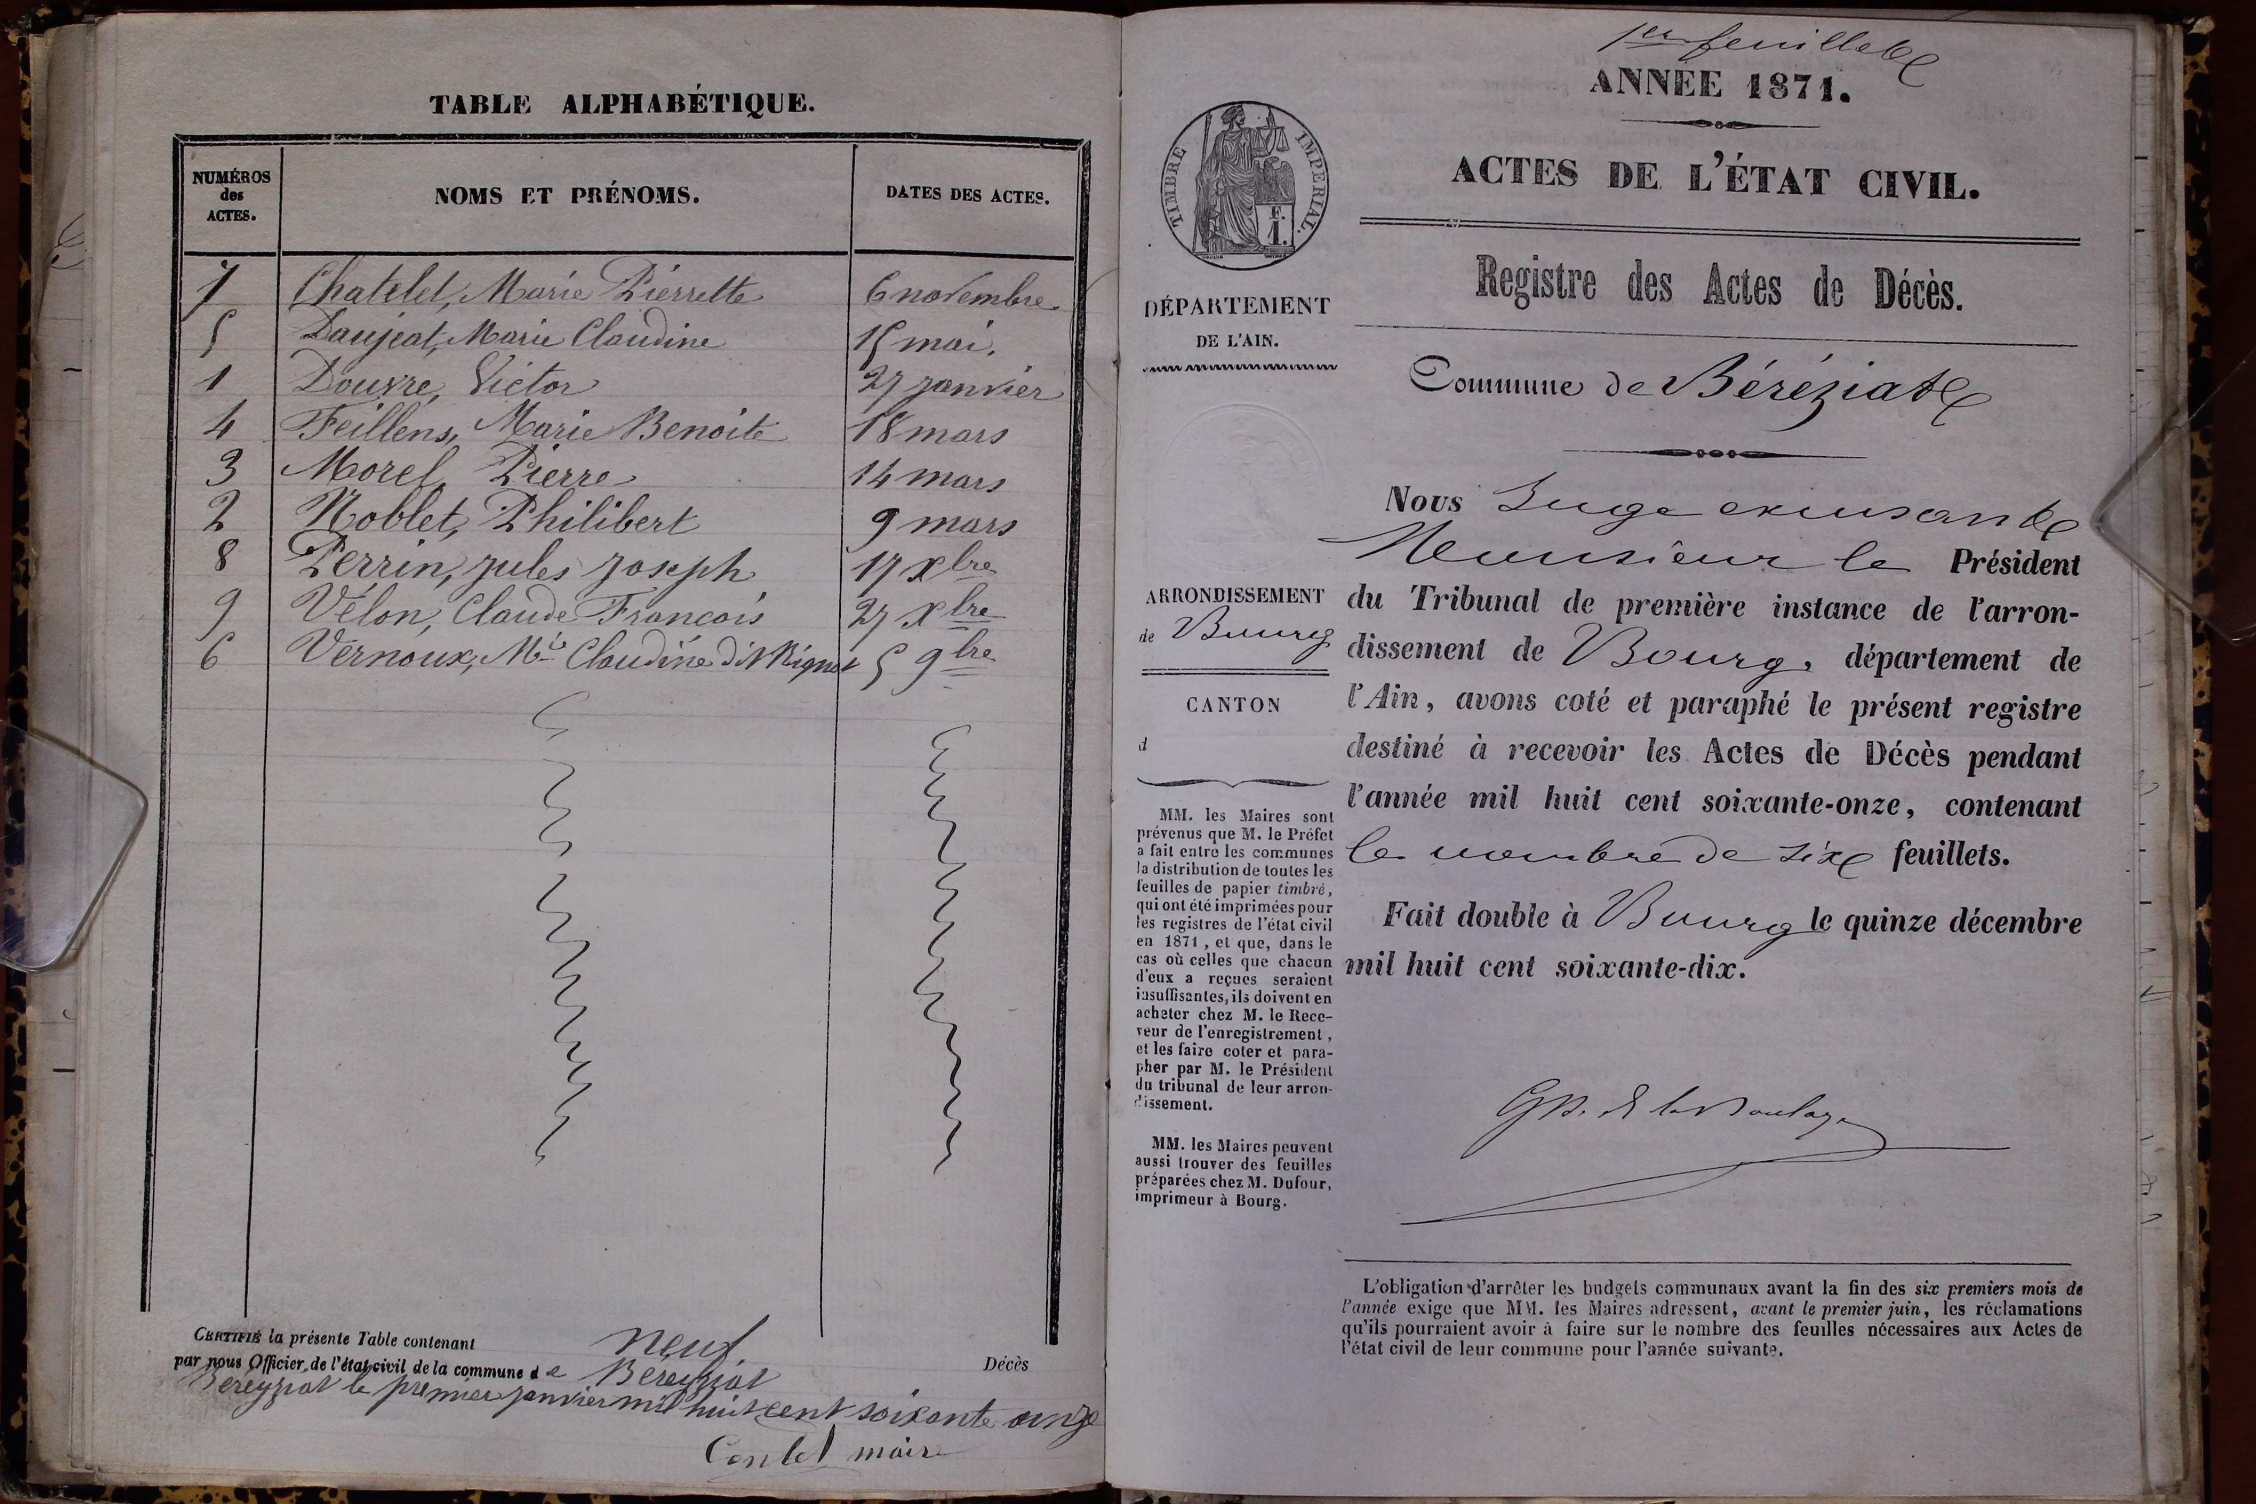 TABLE ALPHABÉTIQUE.
NUMÉROS des ACTES. NOMS ET PRÉNOMS. DATES DES ACTES.
7 Chatelet, Marie Pierrette 6 novembre
5 Daujeat, Marie Claudine 15 mai.
1 Douvre, Victor 27 janvier
4 Feillens, Marie Benoite 18 mars
3 Morel, Pierre 14 mars
2 Noblet, Philibert 9 mars
8 Perrin, Jules Joseph 17 xbre
9 Vélon, Claude François 27 xbre
6 Vernoux, Mie Claudine dit Rignet 5 9bre
CERTIFIÉ la présente Table contenant neuf Décès
par nous Officier de l'état civil de la commune de Bereyziat
Bereyziat le premier janvier mil huit cent soixante onze
maire
1er feuillet
ANNÉE 1871.
ACTES DE L'ÉTAT CIVIL.
Registre des Actes de Décès.
Commune de Béréziat
TIMBRE IMPERIAL.
F.
1.
DÉPARTEMENT
DE L'AIN.
ARRONDISSEMENT
de Bourg
CANTON
d
MM. les Maires sont
prévenus que M. le Préfet
a fait entre les communes
la distribution de toutes les
feuilles de papier timbré,
qui ont été imprimées pour
les registres de l'état civil
en 1871, et que, dans le
cas où celles que chacun
d'eux a reçues seraient
insuffisantes, ils doivent en
acheter chez M. le Rece-
veur de l'enregistrement,
et les faire coter et para-
pher par M. le Président
du tribunal de leur arron-
dissement.
MM. les Maires peuvent
aussi trouver des feuilles
préparées chez M. Dufour,
imprimeur à Bourg.
Nous Juge
Monsieur le Président
du Tribunal de première instance de l'arron-
dissement de Bourg, département de
l'Ain, avons coté et paraphé le présent registre
destiné à recevoir les Actes de Décès pendant
l'année mil huit cent soixante-onze, contenant
le nombre de six feuillets.
Fait double à Bourg le quinze décembre
mil huit cent soixante-dix.
L'obligation d'arrêter les budgets communaux avant la fin des six premiers mois de
l'année exige que MM. les Maires adressent, avant le premier juin, les réclamations
qu'ils pourraient avoir à faire sur le nombre des feuilles nécessaires aux Actes de
l'état civil de leur commune pour l'année suivante.